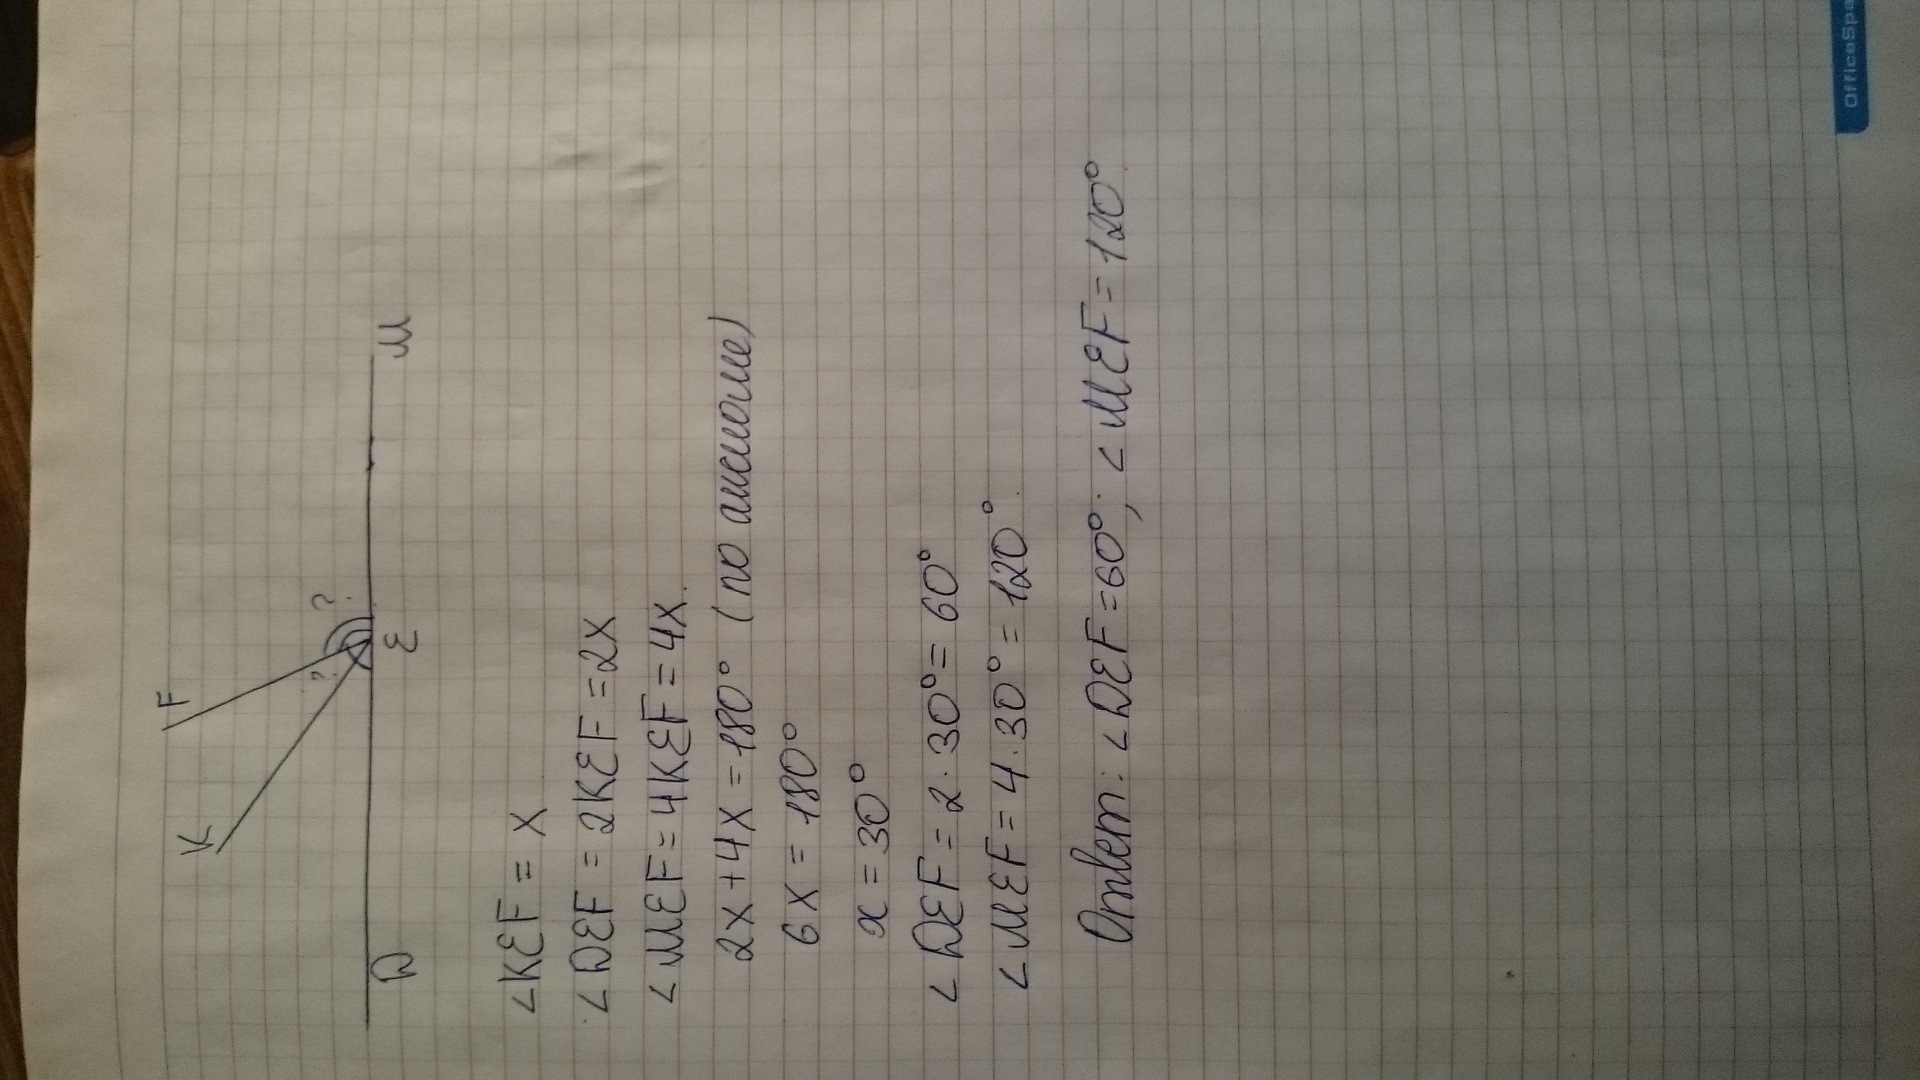 K
F
?
?
D
E
M
∠KEF = x
∠DEF = 2KEF = 2x
∠MEF = 4KEF = 4x.
2x + 4x = 180° (по аксиоме)
6x = 180°
x = 30°
∠DEF = 2 · 30° = 60°
∠MEF = 4 · 30° = 120°.
Ответ: ∠DEF = 60°; ∠MEF = 120°.
OfficeSpa